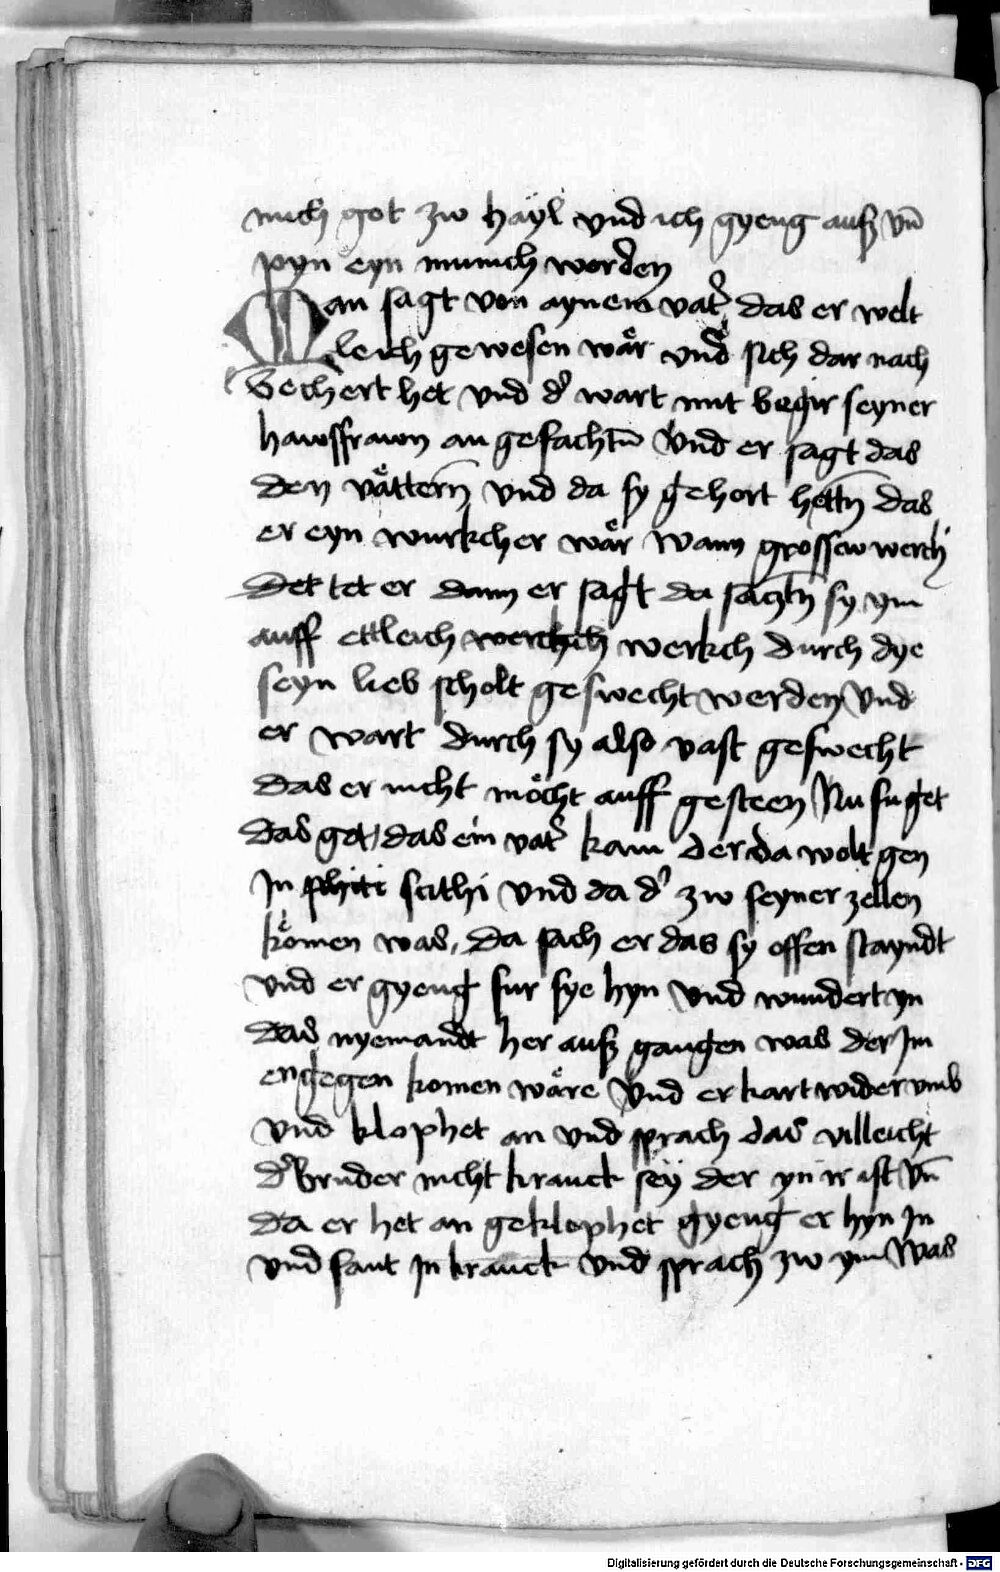 mich got zw hayl vnd ich gyeng auß vn̄
pyn eyn munich worden
Man sagt von aynem vat' das er welt
leich gewesen wår vnd sich dar nach
bechert het vnd d' wart mit begir seyner
hawsfrawn an gefachtn̄ Vnd er sagt das
den våttern̄ vnd da sy gehort hettn̄ das
er eyn wurkcher wår Wann grossew werch
Det tet er dann er sagt da sacztn̄ sy ym
auff ettleich werchich werkch durch dye
seyn lieb scholt geswecht werden Vnd
er wart durch sy also vast geswecht
das er nicht möcht auff gesteen Nu fuget
das got das ein vat' kam der da wolt gen
In phiti scithi vnd da d' zw seyner zellen
kömen was, Da sach er das sy offen stayndt
vnd er gyeng fur sye hyn Vnd wundert yn
das nyemandt her auß gangen was der Im
engegen komen wåre Vnd er kart wider vmb
vnd klophet an vnd sprach das villeicht
d' bruder nicht kranck sey der yn ir ist Vn̄
da er het an geklophet gyeng er hyn In
vnd fant In kranck Vnd sprach zw ym Was
Digitalisierung gefördert durch die Deutsche Forschungsgemeinschaft - DFG